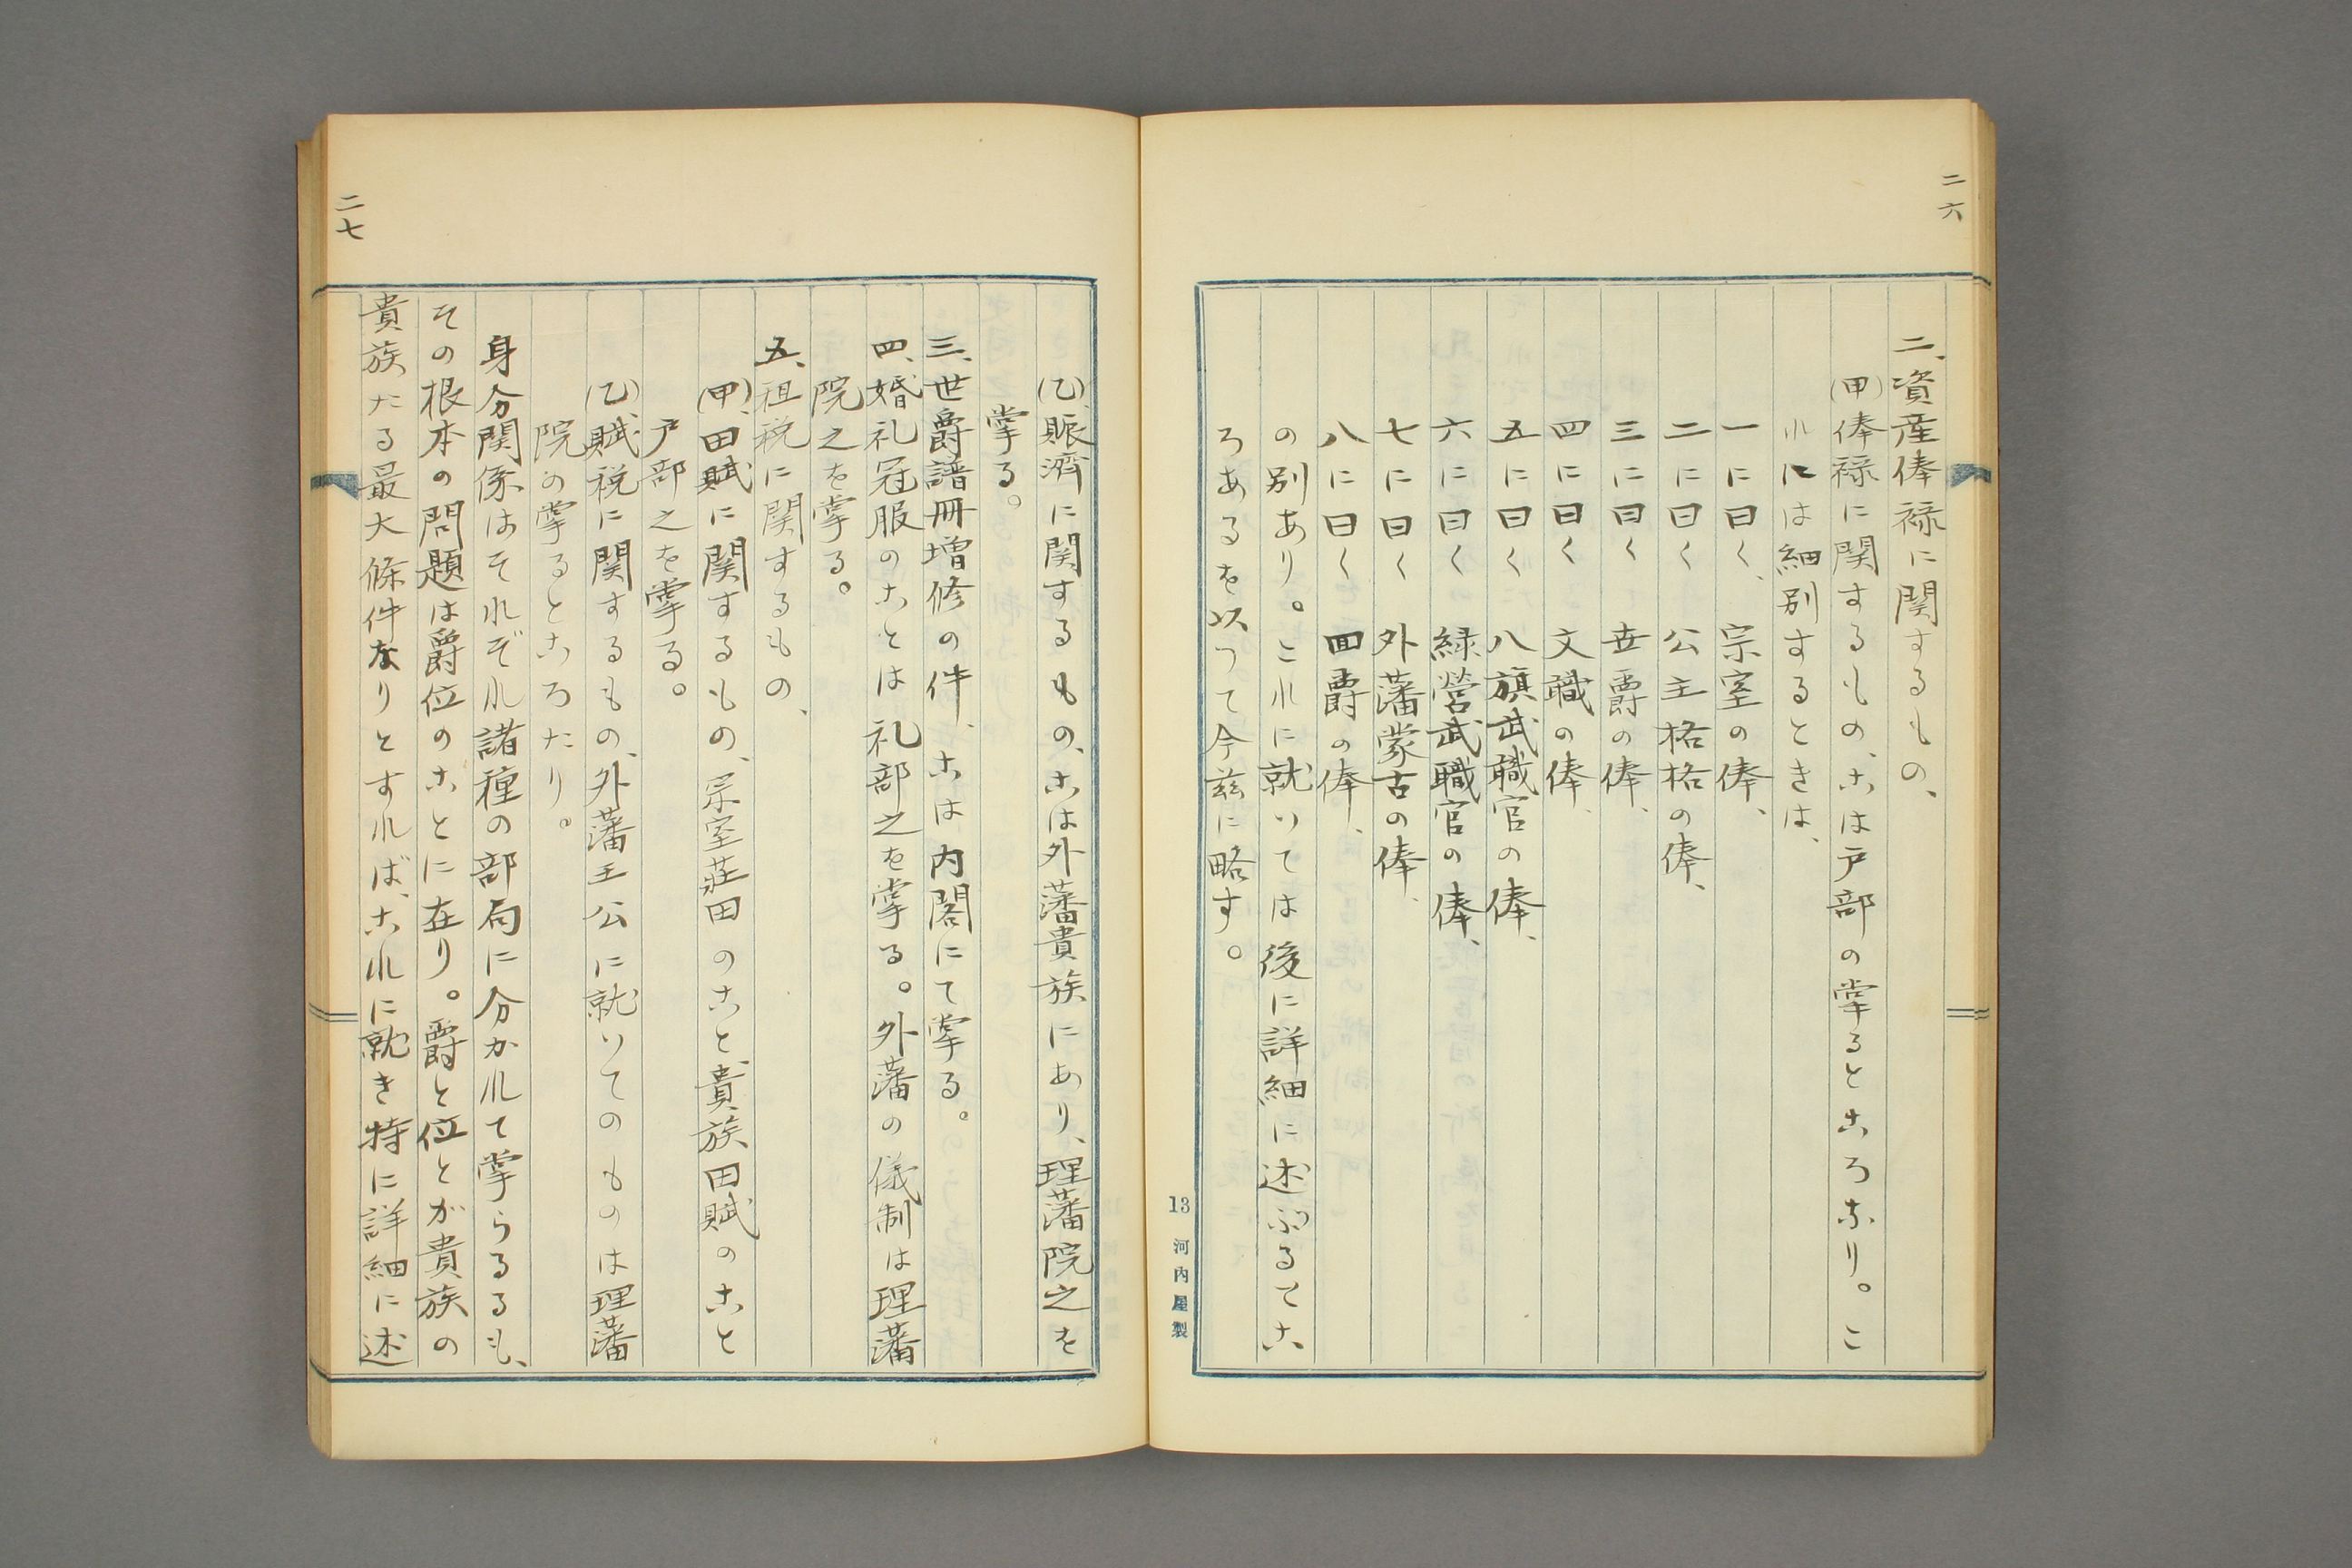 二六
二、資産俸禄に関するもの、
(甲)俸禄に関するもの、こは戸部の掌るところなり。こ
れには細別するときは、
一に曰く、宗室の俸、
二に曰く 公主格格の俸、
三に曰く 世爵の俸、
四に曰く 文職の俸、
五に曰く 八旗武職官の俸、
六に曰く 緑営武職官の俸、
七に曰く 外藩蒙古の俸、
八に曰く 回爵の俸、
の別あり。これに就いては後に詳細に述ぶるとこ
ろあるを以つて今玆に略す。
13 河内屋製
二七
(乙)、賑済に関するもの、こは外藩貴族にあり、理藩院之を
掌る。
三、世爵譜冊増修の件、こは内閣にて掌る。
四、婚礼冠服のことは礼部之を掌る。外藩の儀制は理藩
院之を掌る。
五、租税に関するもの、
(甲)、田賦に関するもの、宗室荘田のこと、貴族田賦のこと
戸部之を掌る。
(乙)、賦税に関するもの、外藩王公に就いてのものは理藩
院の掌るところたり。
身分関係はそれぞれ諸種の部局に分かれて掌らるるも、
その根本の問題は爵位のことに在り。爵と位とが貴族の
貴族たる最大條件なりとすれば、これに就き特に詳細に述